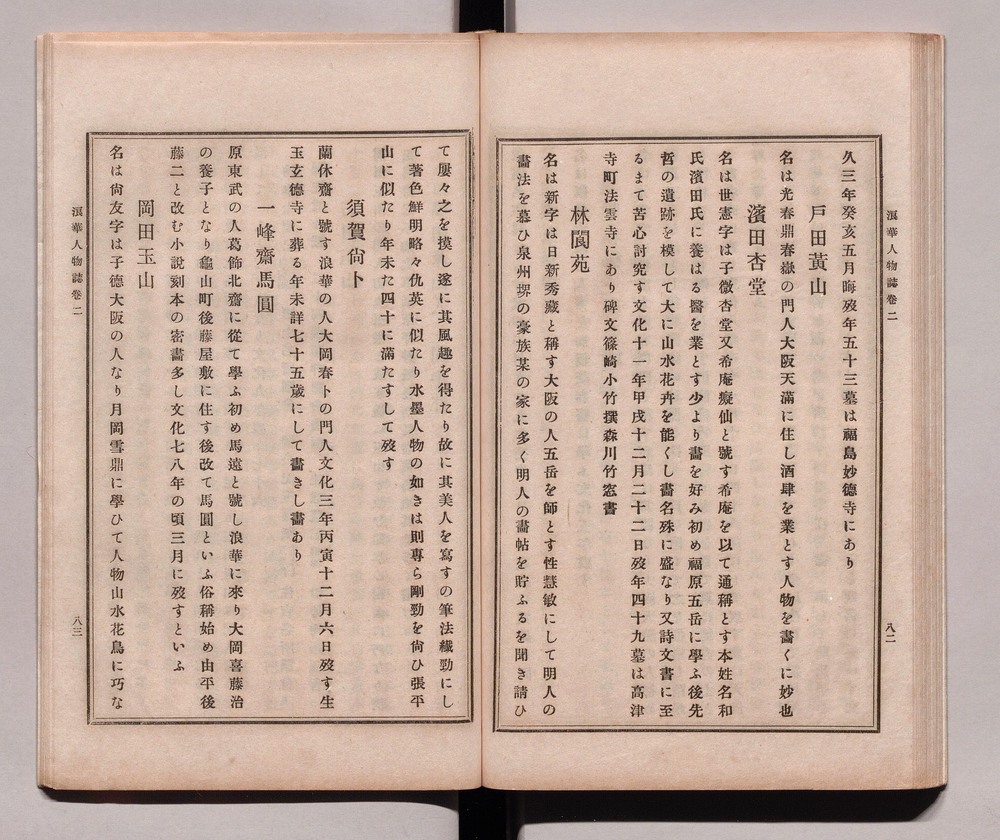 浪華人物誌卷二
八二
久三年癸亥五月晦歿年五十三墓は福島妙德寺にあり
戸田黃山
名は光春鼎春嶽の門人大阪天滿に住し酒肆を業とす人物を畫くに妙也
濱田杏堂
名は世憲字は子徵杏堂又希庵癡仙と號す希庵を以て通稱とす本姓名和
氏濱田氏に養はる醫を業とす少より畫を好み初め福原五岳に學ふ後先
哲の遺跡を模して大に山水花卉を能くし畫名殊に盛なり又詩文書に至
るまて苦心討究す文化十一年甲戌十二月二十二日歿年四十九墓は高津
寺町法雲寺にあり碑文篠崎小竹撰森川竹窓書
林閬苑
名は新字は日新秀藏と稱す大阪の人五岳を師とす性慧敏にして明人の
畫法を慕ひ泉州堺の豪族某の家に多く明人の畫帖を貯ふるを聞き請ひ
て屢々之を摸し遂に其風趣を得たり故に其美人を寫すの筆法纎勁にし
て著色鮮明略々仇英に似たり水墨人物の如きは則專ら剛勁を尙ひ張平
山に似たり年未た四十に滿たすして歿す
須賀尙卜
蘭休齋と號す浪華の人大岡春卜の門人文化三年丙寅十二月六日歿す生
玉玄德寺に葬る年未詳七十五歲にして畫きし畫あり
一峰齋馬圓
原東武の人葛飾北齋に從て學ふ初め馬遠と號し浪華に來り大岡喜藤治
の養子となり龜山町後藤屋敷に住す後改て馬圓といふ俗稱始め由平後
藤二と改む小說刻本の密畫多し文化七八年の頃三月に歿すといふ
岡田玉山
名は尙友字は子德大阪の人なり月岡雪鼎に學ひて人物山水花鳥に巧な
浪華人物誌卷二
八三